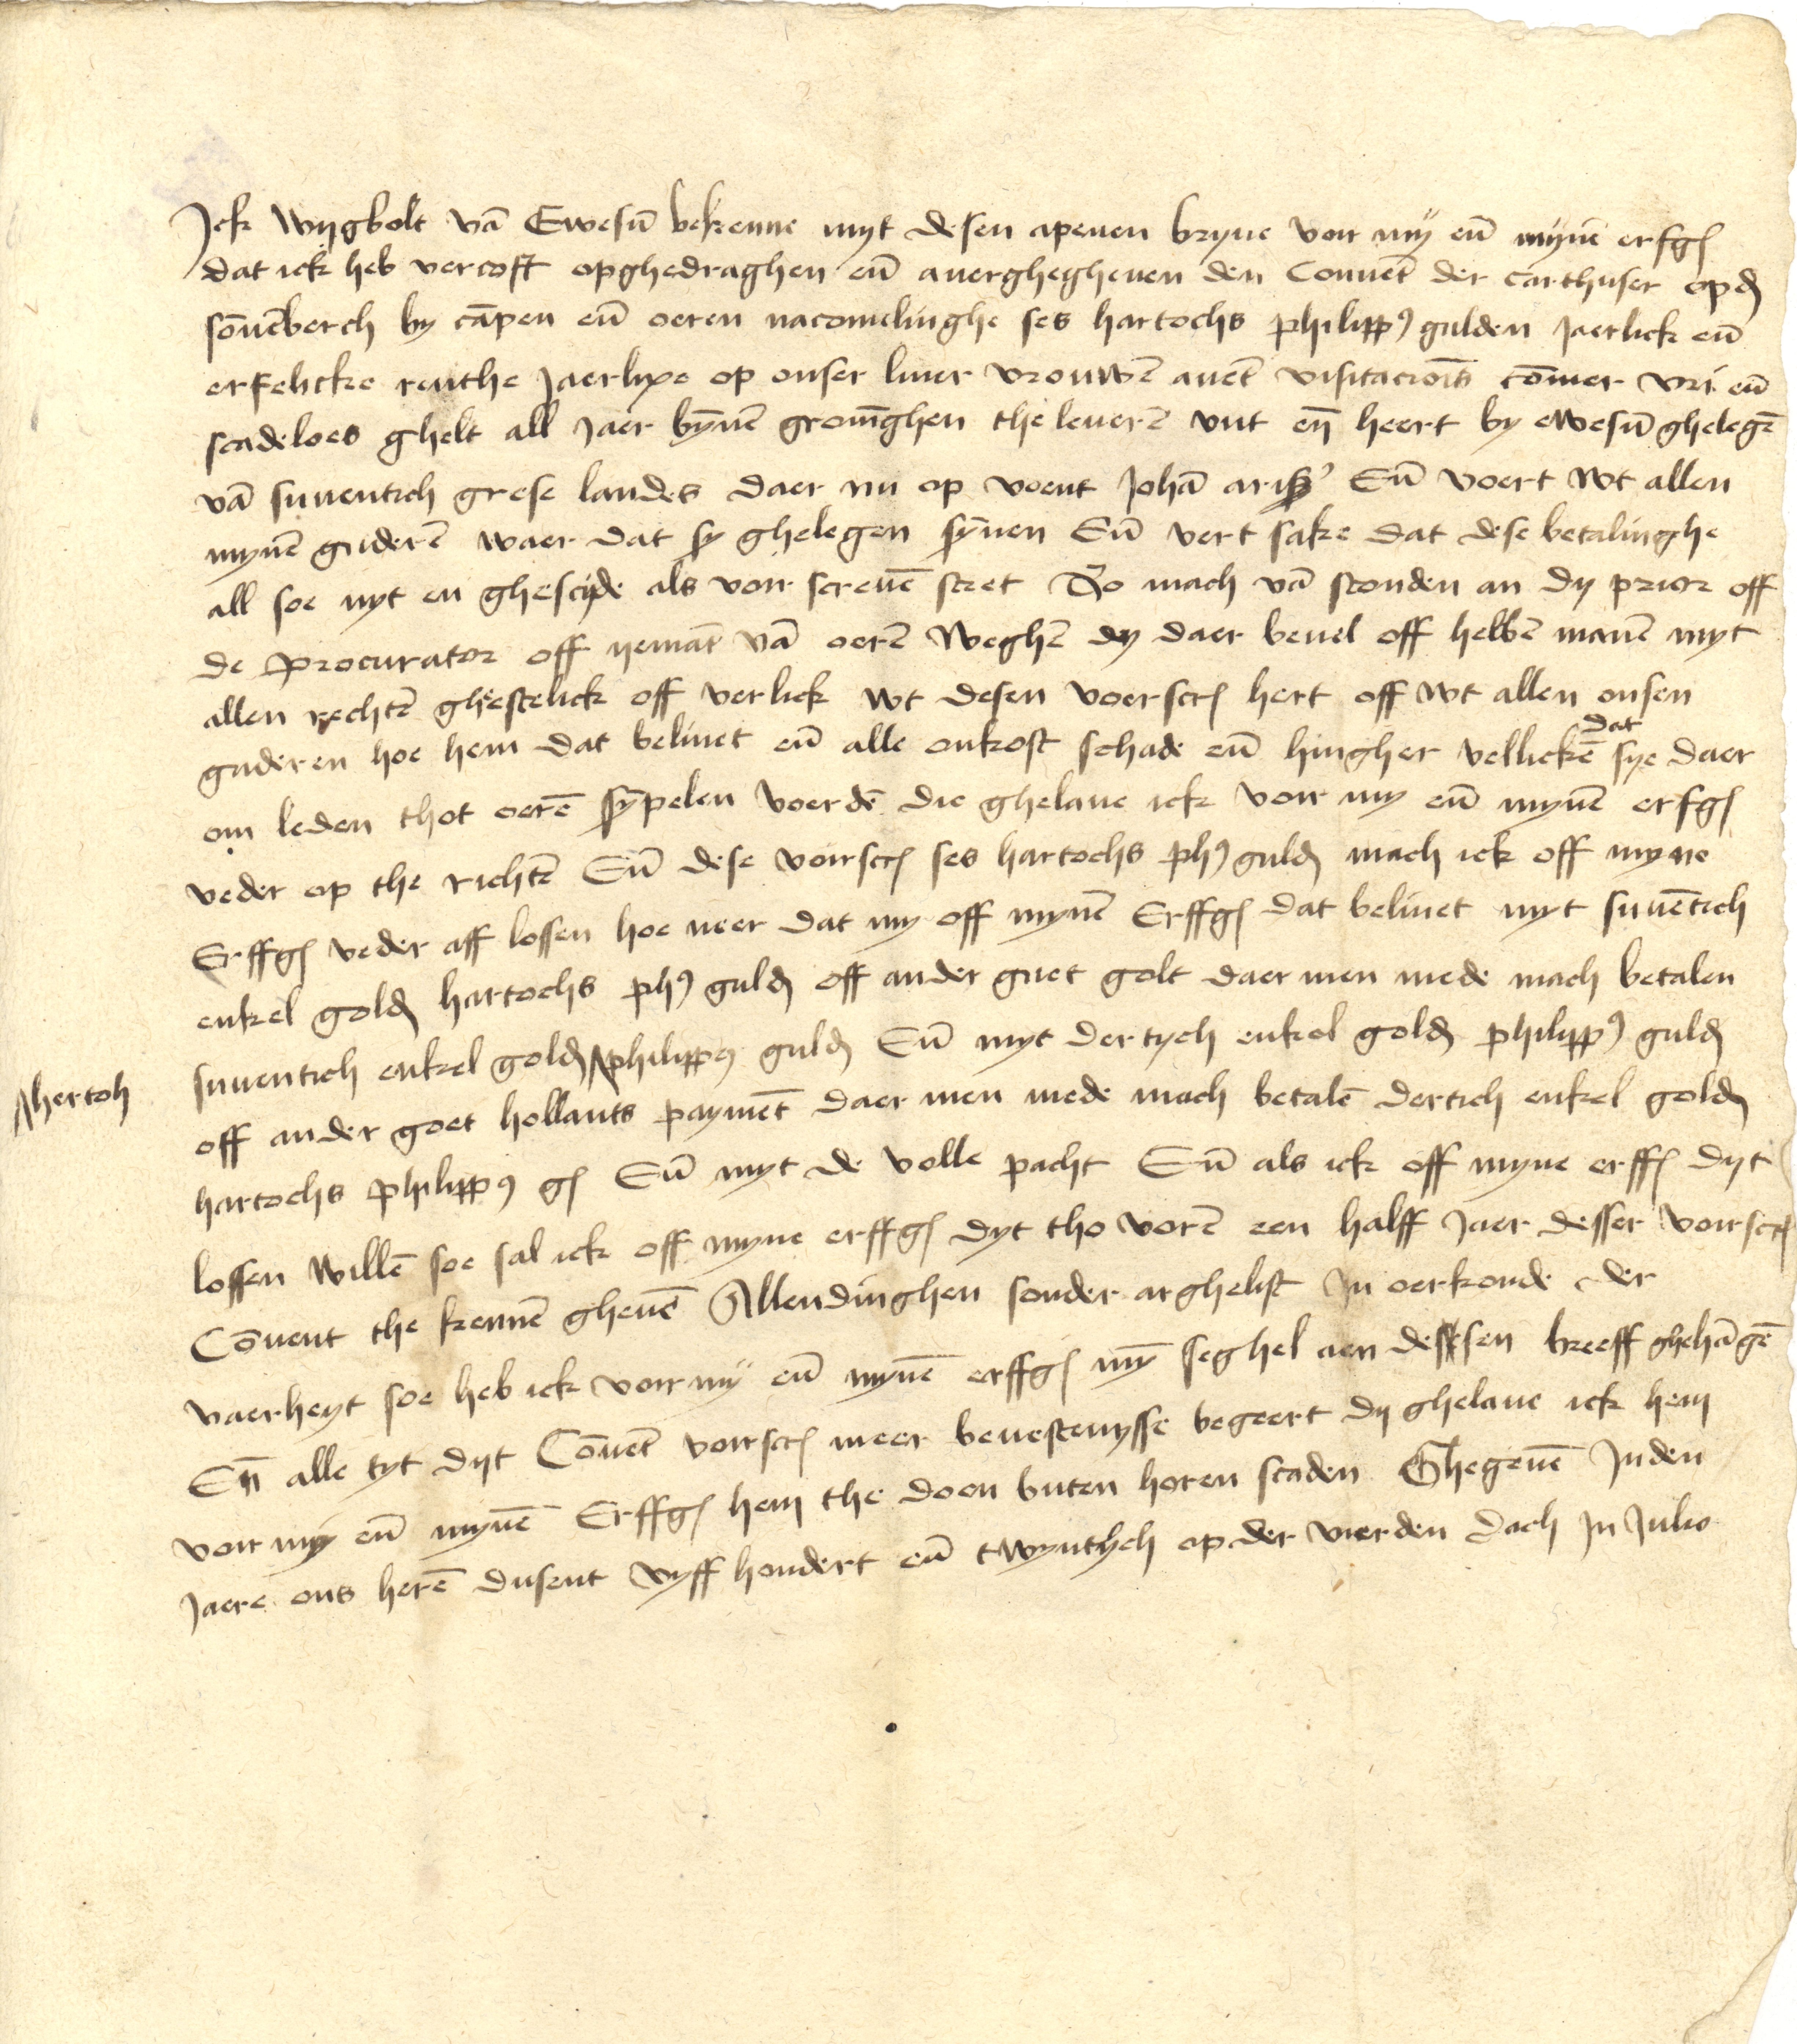 Ick Wygbolt vā Ewesū bekenne myt desen apenen bryue voir my eñ mynē erfgͤ
dat ick heb vercoft opghedraghen eñ auerghegheuen den Conuēt der carthuser opdͤ
sōnēberch by cāpen eñ oeren nacomelinghe ses hartochs philippꝰ gulden Jaerlick eñ
erfelicke renthe Jaerlixe op onser liuer vrouwē auēt visitacioīs cōmer vri eñ
scadeloes ghelt all Jaer bȳnē gronīghen the leuerē vut eñ heert by ewesū gheleGē
vā suuentich grese landes daer nu op voent Johā Eñ voert wt allen
mynē guderē waer dat sy ghelegen synen Eñ vert sake dat dese betalinghe
all soe nyt en ghescyde als voir screuē stet So mach vā stonden an dy prior off
de procurator off yemāt vā oerē weghē dy daer beuel off hebbē manē myt
allen rechtē ghestelick off verlick wt desen voerscrͤ hert off wt allen onsen
guderen hoe hem dat beliuet eñ alle onkost schade eñ hingher vellickē dat sye daer
om leden thot oerē sȳpelen voerdē die ghelaue ick voir my eñ mynē erfgͤ
veder op the richtē Eñ dese voirscrͤ ses hartochs phꝰ guldͤ mach ick off myne
Erffgͤ veder aff lossen hoe neer dat my off mynē Erffgͤ dat beliuet myt suuētich
enkel goldͤ hartochs phꝰ guldͤ off ander guet golt daer men mede mach betalen
suuentich enkel goldͤ ʌphilippꝰ guldͤ Eñ myt dertych enkel goldͤ philippꝰ guldͤ
ʌhertoh
off ander goet hollants paymēt daer men mede mach betalē dertich enkel goldͤ
hartochs philippꝰ gͤ Eñ myt de volle pacht Eñ als ick off myne erffͤ dyt
lossen willē soe sal ick off myne erffgͤ dyt tho vorē een halff Jaer desser voirscrͤ
Cōuent the kennē gheuē Allendinghen sonder arghelist In oerkonde der
vaerheyt soe heb ick voir my eñ mynē erffgͤ mȳ seghel aen dessen breeff ghehāgē
Eñ alle tyt dyt Cōuēt voirscrͤ meer beuestenysse begeert dy ghelaue ick hem
voir my eñ mynē Erffgͤ hem the doen buten horen scaden Ghegeuē Inden
Jaere ons herē dusent vyff hondert eñ twyntych op der vierden dach In Julio